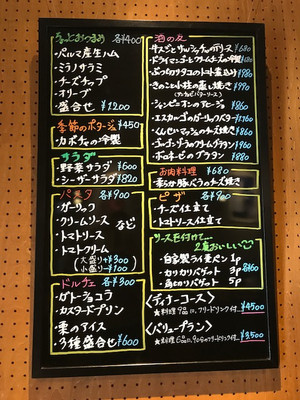 各¥400
・パルマ産生ハム
・ミラノサラミ
・チーズチップ
・オリーブ
・盛合せ ¥1200
季節のポタージュ ¥450
・カボチャの冷製
サラダ
・野菜サラダ ¥600
・シーザーサラダ ¥820
パスタ 各¥900
・ガーリック
・クリームソース
・トマトソース など
・トマトクリーム
(大盛り+¥300)
(小盛り-¥100)
ドルチェ 各¥300
・ガトーショコラ
・カスタードプリン
・栗のアイス
・3種盛合せ ¥600
酒の友
¥680
・ドライマンゴとクリームチーズの
・ぶつ切りタコのトマト煮込み ¥880
・きのこと小柱の蒸し焼き ¥990
・シャンピニオンのアヒージョ ¥860
・エスカルゴのガーリックバター ¥1760
・くんせいマッシュのチーズ焼き ¥860
・クリームグラタン ¥960
・ボロネーゼのグラタン ¥880
お肉料理 ¥680
・豚バラのチーズ焼き
ピザ 各¥900
・チーズ仕立て
・トマトソース仕立て
ソースを付けて...
2度おいしい
・自家製ライ麦パン 1p
・カリカリバゲット 3p 各¥60
・角切りバゲット 5p
〈ディナーコース〉
★料理9品に、フリードリンク付 ¥4500
〈バリュープラン〉
★料理6品に、90分のフリードリンク付 ¥3,500